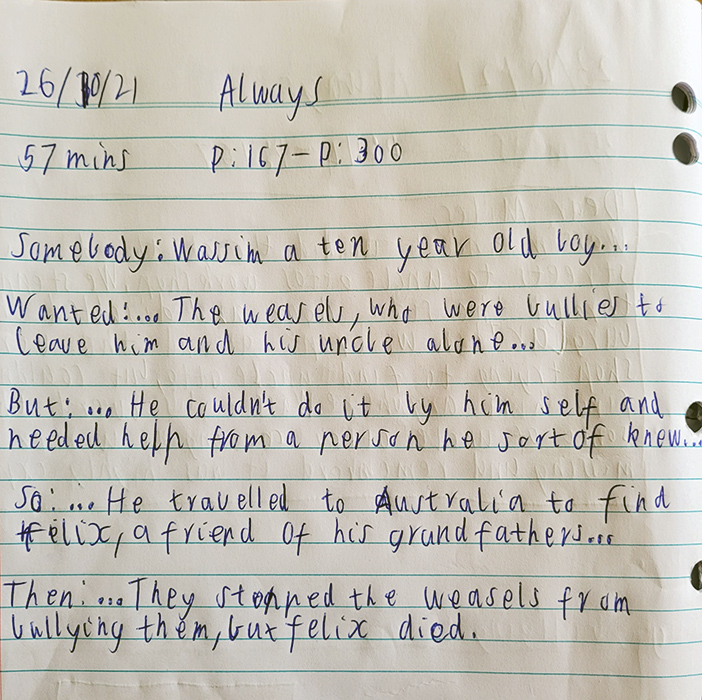 26/10/21 Always
57 mins P: 167 - P: 300
Somebody: Wassim a ten year old boy...
Wanted:... The weasels, who were bullies to
leave him and his uncle alone...
But:... He couldn't do it by him self and
needed help from a person he sort of knew...
So:... He travelled to Australia to find
felix, a friend of his grandfathers...
Then:... They stopped the weasels from
bullying them, but felix died.